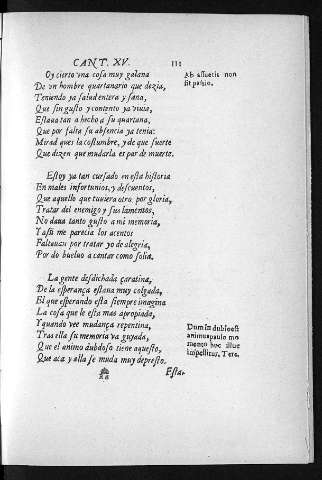 CANT. XV. 111
Oy cierto vna cosa muy galana
De vn hombre quartanario que dezia,
Teniendo ya salud entera y sana,
Que sin gusto y contento ya viuia,
Estaua tan a hecho a su quartana,
Que por falta su absencia ya tenia:
Mirad ques la costumbre, y de que suerte
Que dizen que mudarla es par de muerte.
Ab assuetis non
fit passio.
Estoy ya tan cursado en esta historia
En males infortunios, y descuentos,
Que aquello que tuuiera otro por gloria,
Tratar del enemigo y sus lamentos,
No daua tanto gusto a mi memoria,
Y assi me parecia los acentos
Faltauan por tratar yo de alegria,
Por do bueluo a cantar como solia.
La gente desdichada çaratina,
De la esperança estaua muy colgada,
El que esperando esta siempre imagina
La cosa que le esta mas apropiada,
Y quando vee mudança repentina,
Tras ella su memoria va guyada,
Que el animo dubdoso tiene aquesto,
Que aca y alla se muda muy depresto.
Dum in dubio est
animus paulo mo
mento huc illuc
impellitur, Tere.
Esta-